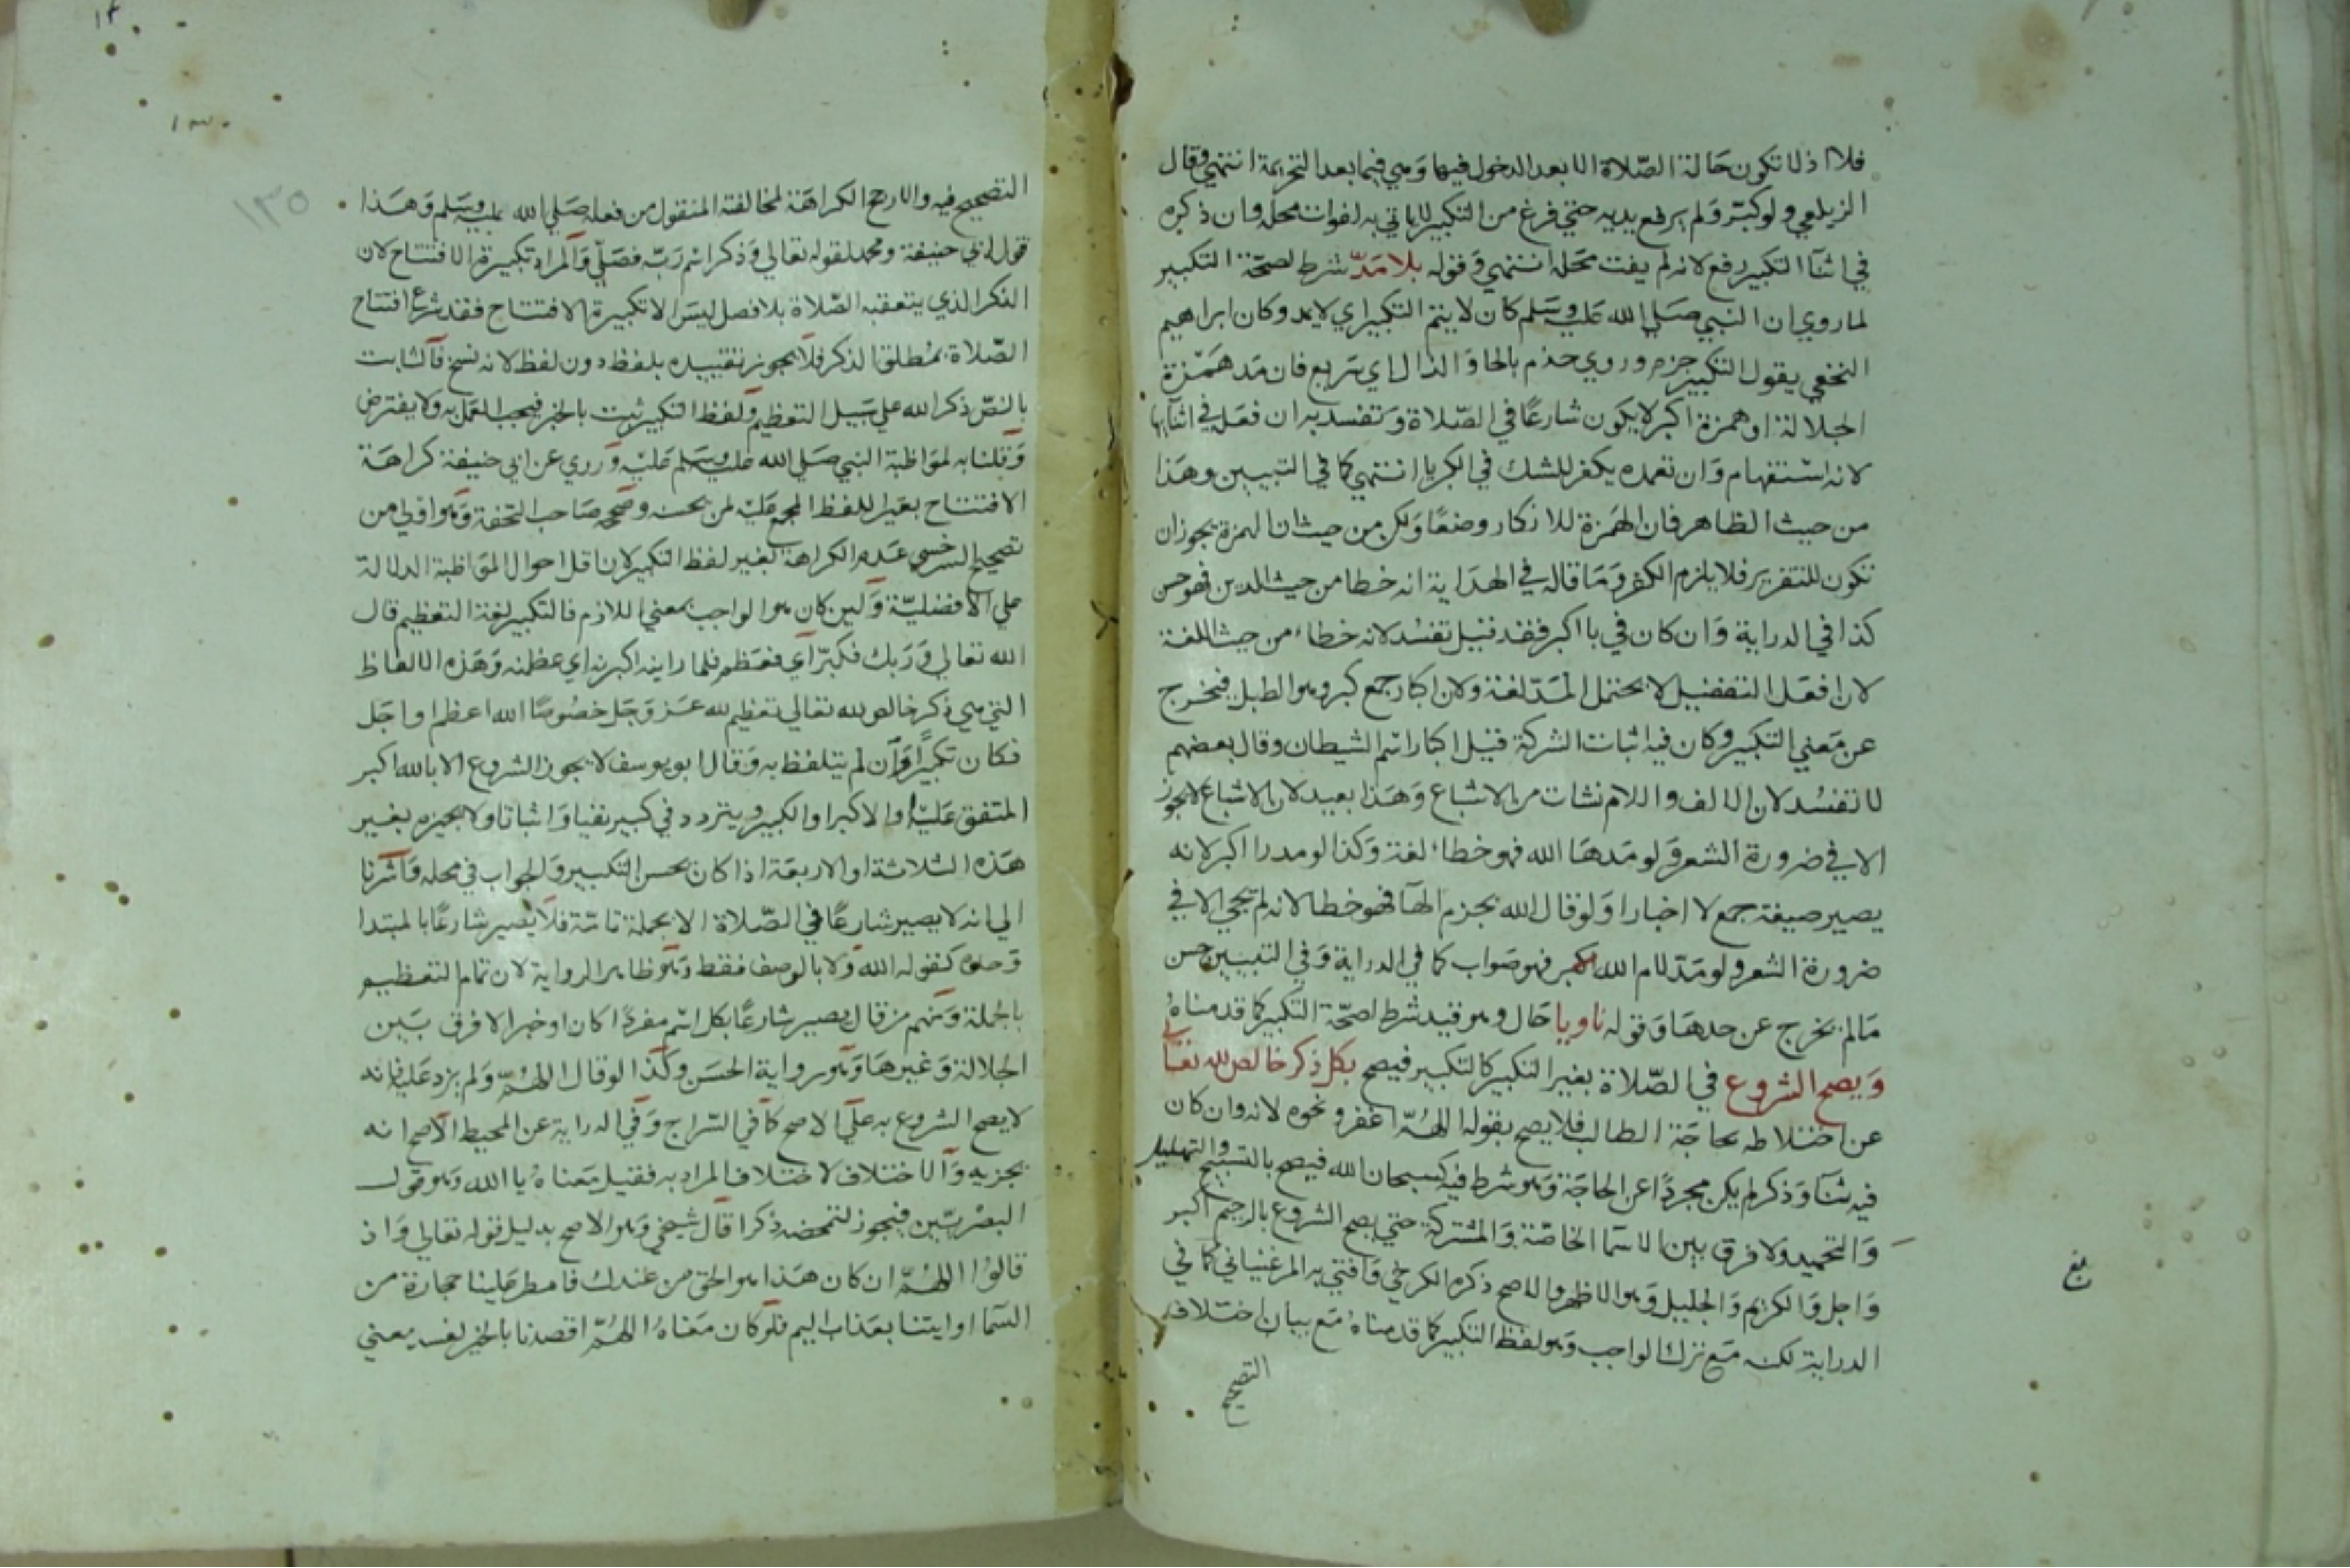 فلا اذ لا تكون حالة الصّلاة الا بعد الدخول فيها وهي فيما بعد التحريمة انتهي وقال
الزيلعي ولو كبّر ولم يرفع يديه حتي فرغ من التكبير لا ياتي به لفوات محله وان ذكره
في اثنآ التكبير رفع لانه لم يفت محله انتهي وقوله بلا مدّ شرط لصحّة التكبير
لما روي ان النبي صلي الله عليه وسلم كان لا يتم التكبير اي لا يمد وكان ابراهيم
النخعي يقول التكبير جزم وروي حذم بالحا والذال اي سريع فان مد همزة
الجلالة او همزة اكبر لا يكون شارعًا في الصّلاة وتفسد به ان فعله في اثنآيها
لانه استفهام وان تعمده يكفر للشك في الكبريا انتهي كما في التبيين وهذا
من حيث الظاهر فان الهمزة للانكار وضعًا ولكن من حيث ان الهمزة يجوز ان
تكون للتقرير فلا يلزم الكفر وما قاله في الهداية انه خطا من حيث الدين فهو حسن
كذا في الدراية وان كان في با اكبر فقد قيل تفسد لانه خطاء من حيث اللغة
لان افعل التفضيل لا يحتمل المدّ لغة ولان اكبار جمع كبر وهو الطبل فيخرج
عن معني التكبير وكان فيه اثبات الشركة قيل اكبار اسم الشيطان وقال بعضهم
لا تفسد لان الالف واللام نشات من الاشباع وهذا بعيد لان الاشباع لا يجوز
الا في ضرورة الشعر ولو مد ها الله فهو خطاء لغة وكذا لو مد را اكبر لانه
يصير صيغة جمع لا اخبارا ولو قال الله بجزم الهآ فهو خطا لانه لم يجي الا في
ضرورة الشعر ولو مدّ لام الله اكبر فهو صواب كما في الدراية وفي التبيين حسن
مالم يخرج عن حدها وقوله ناويا حال وهو قيد شرط لصحّة التكبير كما قدمناهُ
ويصح الشروع في الصّلاة بغير التكبير كالتكبير فيصح بكل ذكر خالص لله تعالي
عن اختلاطه بحاجة الطالب فلا يصح بقوله اللهُمّ اغفر ونحوه لانه وان كان
فيه ثنآ وذكر لم يكن مجردًا عن الحاجة وهو شرط فيه كسبحان الله فيصح بالتسبيح والتهليل
والتحميد ولا فرق بين الاسما الخاصّة والمشتركة حتي يصح الشروع بالرحيم اكبر
واجل والكريم والجليل وهو الاظهر والاصح ذكره الكرخي وافتي به المرغيناني كما في
الدراية لكنه مع ترك الواجب وهو لفظ التكبير كما قدمناهُ مع بيان اختلاف
التصحيح
التصحيح فيه والارجح الكراهة لمخالفته المنقول من فعله صلي الله عليه وسلم وهذا
قول ابي حنيفة ومحمد لقوله تعالي وذكر اسم ربّه فصلّي والمراد تكبيرة الافتتاح لان
الذكر الذي يتعقبه الصّلاة بلا فصل ليس الا تكبيرة الافتتاح فقد شرع افتتاح
الصّلاة بمُطلق الذكر فلا يجوز تقييده بلفظ دون لفظ لانه نسخ فالثابت
بالنصّ ذكر الله علي سبيل التعظيم ولفظ التكبير ثبت بالخبر فيجب العمل به ولا يفترض
وقلنا به لمواظبة النبي صلي الله عليه وسلم عليْه وروي عن ابي حنيفة كراهة
الافتتاح بغير اللفظ المجمع عليْه لمن يحسنه وصححه صاحب التحفة وهو اولي من
تصحيح السرخسي عدم الكراهة لغير لفظ التكبير لان اقل احوال المواظبة الدلالة
علي الافضليّة ولين كان هو الواجب بمعني اللازم فالتكبير لغة التعظيم قال
الله تعالي وربك فكبّر اي فعظم فلما راينه اكبرنه اي عظمنه وهذه الالفاظ
التي هي ذكر خالص لله تعالي تعظيم لله عز وجل خصُوصًا الله اعظم او اجل
فكان تكبيرًا وان لم يتلفظ به وقال ابو يوسف لا يجوز الشروع الا بالله اكبر
المتفق عليْه او الاكبر او الكبير ويتردد في كبير نفيا واثباتا ولا يجيزه بغير
هذه الثلاثة او الاربعة اذا كان يحسن التكبير والجواب في محله واشرنا
الي انه لا يصير شارعًا في الصّلاة الا بجملة تامّة فلا يصير شارعًا بالمبتدا
وحده كقوله الله ولا بالوصف فقط وهو ظاهر الرواية لان تمام التعظيم
بالجملة ومنهم من قال يصير شارعًا بكل اسم مفردًا كان او خبرا لا فرق بين
الجلالة وغيرها وهو رواية الحسن وكذا لو قال اللهُمّ ولم يزد عليه فانه
لا يصح الشروع به علي الاصح كما في السّراج وفي الدراية عن المحيط الاصح انه
يجزيه والاختلاف لاختلاف المراد به فقيل معناهُ يا الله وهو قول
البصْريّين فيجوز لتمحضه ذكرا قال شيخي وهو الاصح بدليل قوله تعالي واذ
قالوُا اللهُمّ ان كان هذا هو الحق من عندك فامطر علينا حجارة من
السما او ايتنا بعذاب اليم فلو كان معناهُ اللهُمّ اقصدنا بالخير لفسد معني
١٣٥